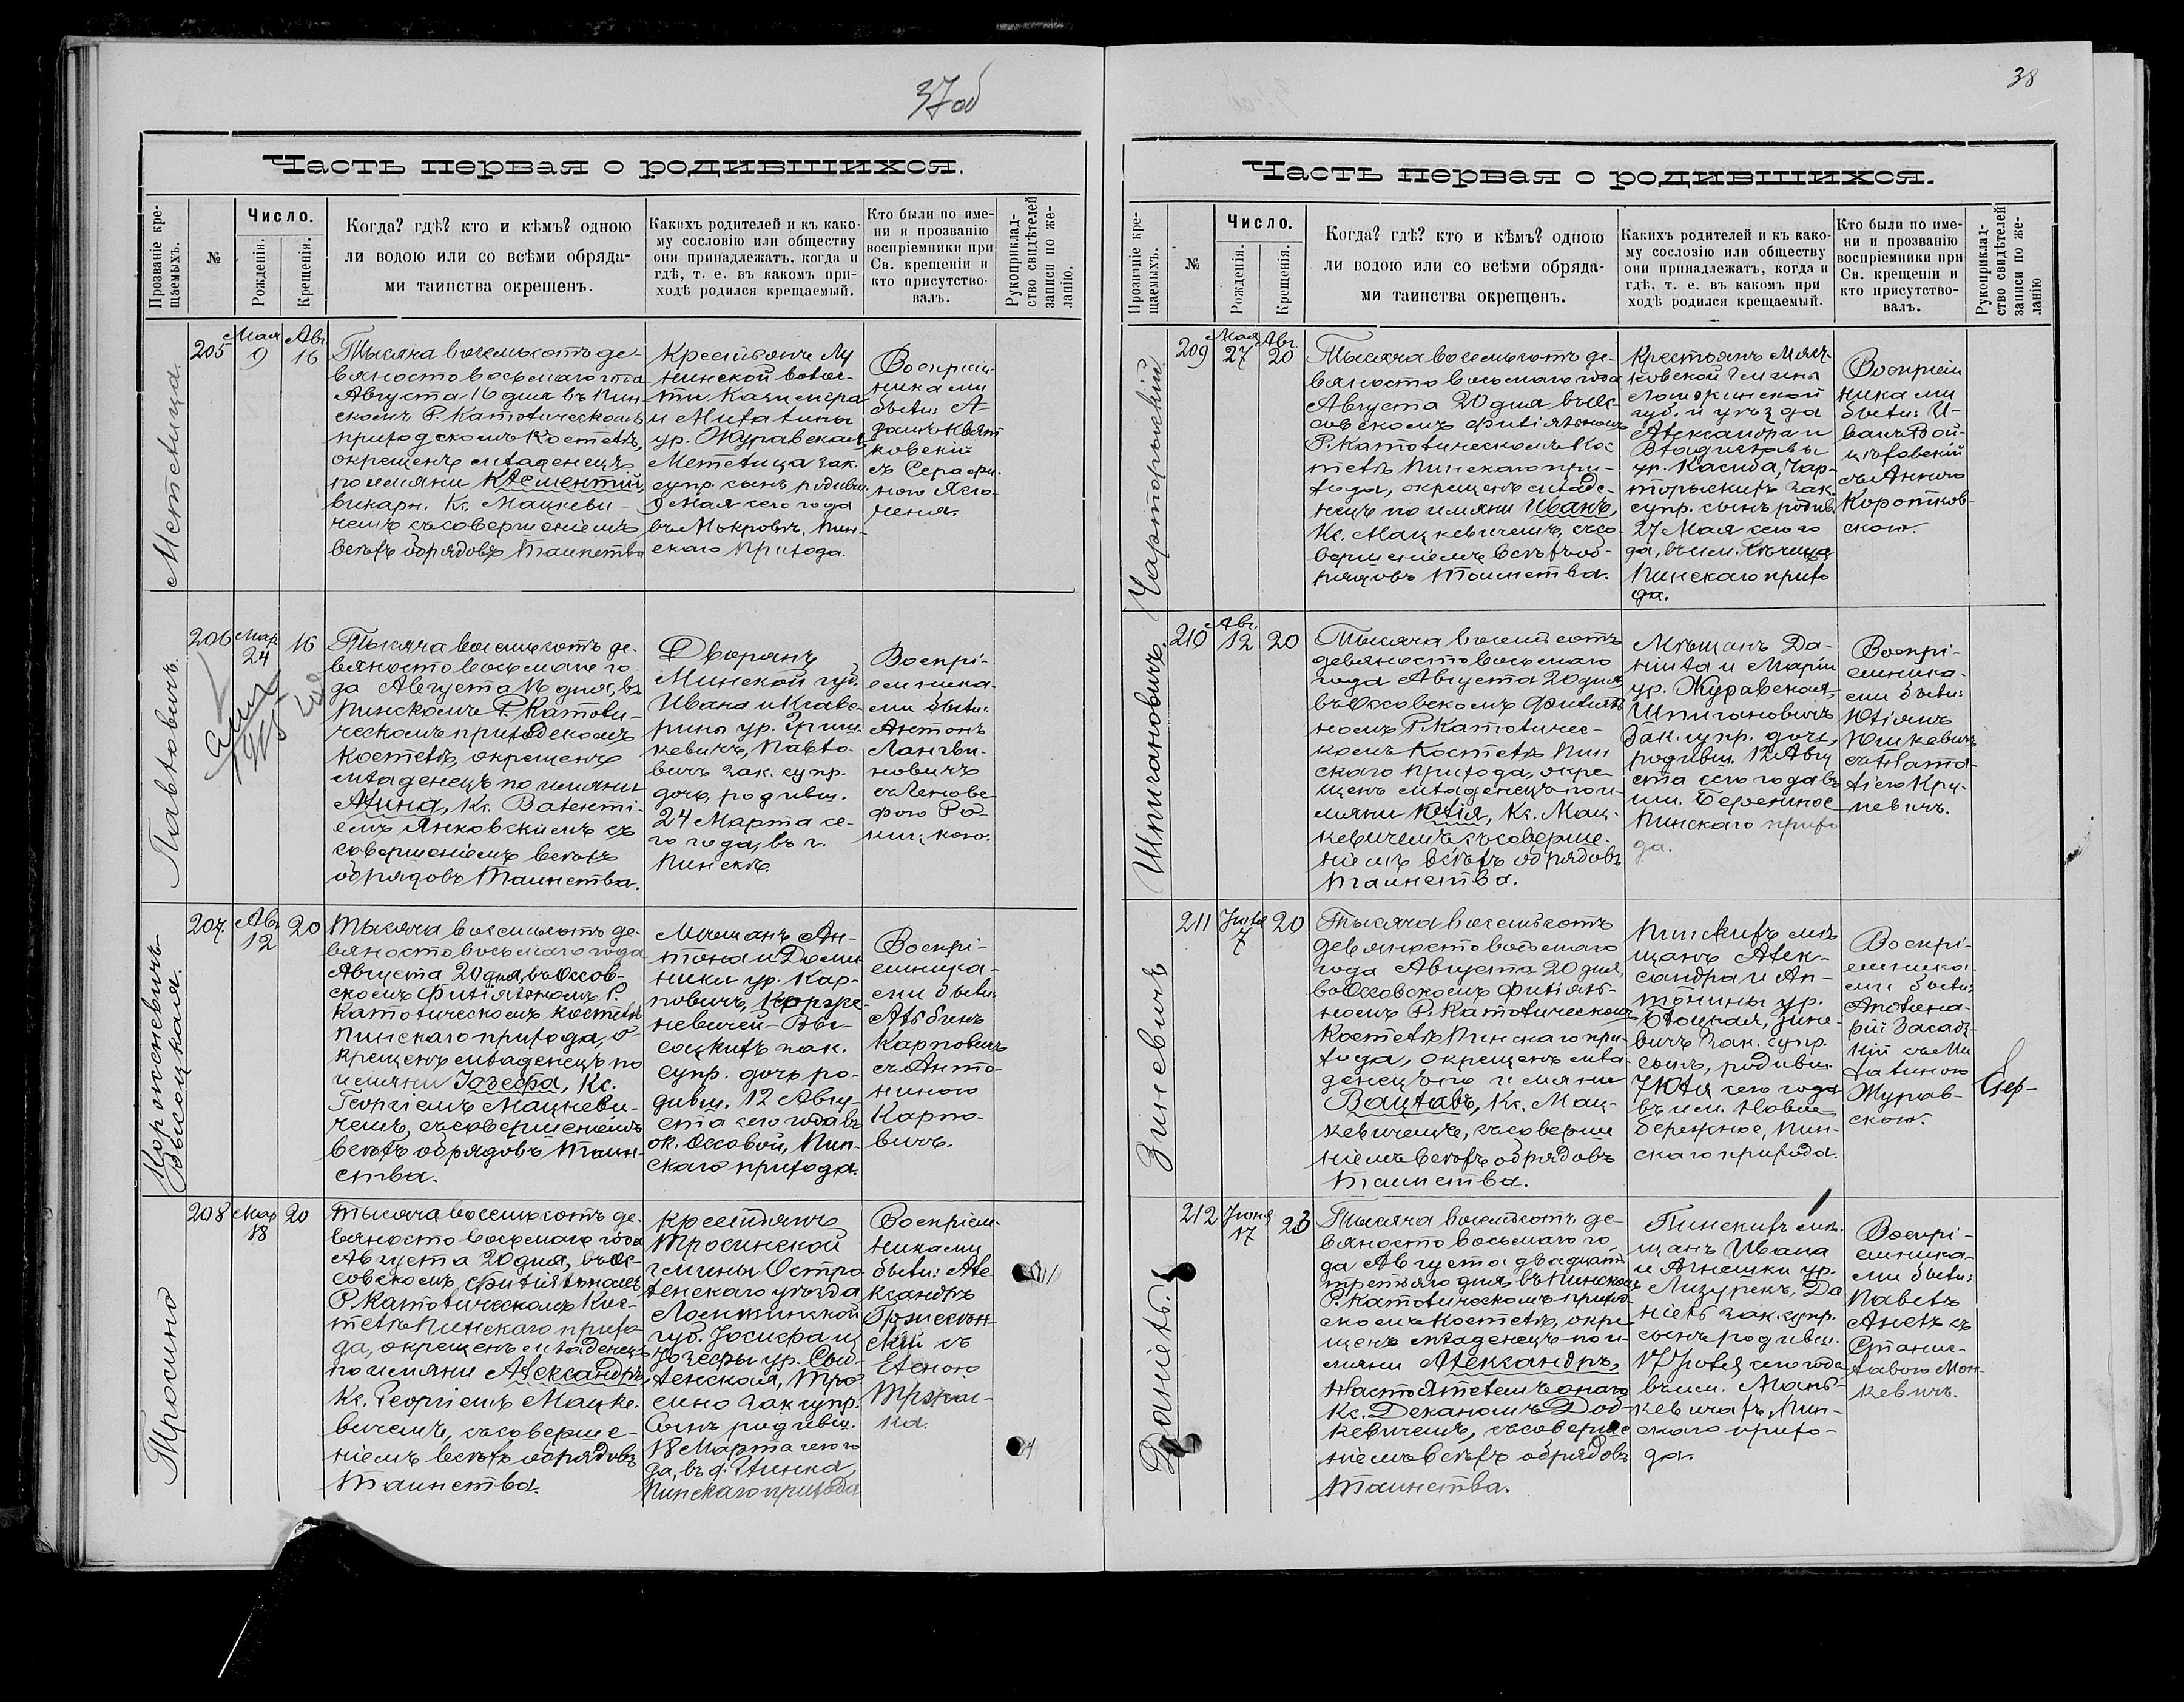 37об
Часть первая о родившихся.
Прозваніе кре-
щаемыхъ.
№
Число.
Рожденія.
Крещенія.
Когда? гдѣ? кто и кѣмъ? одною
ли водою или со всѣми обряда-
ми таинства окрещенъ.
Какихъ родителей и къ како-
му сословію или обществу
они принадлежатъ. когда и
гдѣ, т. е. въ какомъ при-
ходѣ родился крещаемый.
Кто были по име-
ни и прозванію
воспріемники при
Св. крещеніи и
кто присутство-
валъ.
Рукоприклад-
ство свидѣтелей
записи по же-
ланію.
Метелица
205
Мая
9
Авг.
16
Тысяча восемьсотъ де-
вяносто восьмаго года
Августа 16 дня въ Пин-
скомъ Р. Католическомъ
приходскомъ Костелѣ,
окрещенъ младенецъ
по имяни Клементій,
викарн. Кс. Мацкеви-
чемъ съ совершеніемъ
всѣхъ обрядовъ Таинства
Крестьянъ Лу
нинской волос-
ти Казимера
и Михалины
ур. Журавская,
Метелица зак.
супр. сынъ родивш.
9 Мая сего года
въ Мокровѣ, Пин-
скаго Прихода.
Воспріем-
никами
были: А-
дамъ Квят
ковскій
съ Серафи-
мою Яло-
Павловичъ.
206
Мар.
24
16
Тысяча восемьсотъ де-
вяносто восьмаго го-
да Августа 16 дня, въ
Пинскомъ Р. Католи-
ческомъ приходскомъ
Костелѣ, окрещенъ
младенецъ по имяни
Алина, Кс. Валенті-
емъ Янковскимъ съ
совершеніемъ всѣхъ
обрядовъ Таинства.
Дворянъ
Минской губ.
Ивана и Каве-
рины ур. Гриш-
кевичъ, Павло-
вичъ зак. супр.
дочь, родивш.
24 Марта се-
го года, въ г.
Пинскѣ.
Воспрі-
емника-
ми были:
Антонъ
Лангви-
новичъ
съ Геново-
фою Ро-
Коржневичъ-
Высоцкая.
207
Авг.
12
20
Тысяча восемьсотъ де-
вяносто восьмаго года
Августа 20 дня, въ Оссов-
скомъ Филіяльномъ Р.
Католическомъ Костелѣ
Пинскаго прихода, о-
крещенъ младенецъ по
имяни Іозефа, Кс.
Георгіемъ Мацкеви-
чемъ, съ совершеніемъ
всѣхъ обрядовъ Таин-
ства.
Мѣщанъ Ан-
тона и Доми-
ники ур. Кар-
повичъ, Корже-
невичей-Вы-
соцкихъ зак.
супр. дочь ро-
дивш. 12 Авгу-
ста сего года въ
ок. Оссовой, Пин-
скаго прихода.
Воспрі-
емника-
ми были:
Альбинъ
Карповичъ
съ Анто-
ниною
Карпо-
вичъ.
Тросино
208
Мар
18
20
Тысяча восемьсотъ де-
вяносто восьмаго года
Августа 20 дня, въ Ос-
совскомъ филіяльномъ
Р. Католическомъ Кос-
телѣ Пинскаго прихо-
да, окрещенъ младенецъ
по имяни Александръ,
Кс. Георгіемъ Мацке-
вичемъ, съ соверше-
ніемъ всѣхъ обрядовъ
Таинства.
Крестьянъ
Тросинской
гмины Остро
ленскаго уѣзда
Ломжинской
губ. Іосифа и
Іозефы ур.
Тро
сино зак. супр.
Сынъ родивш.
18 Марта сего го
да, въ ф.
Пинскаго прихода
Воспріем-
никами
были: Але-
ксандръ
съ
Еленою
38
Часть первая о родившихся.
Прозваніе кре-
щаемыхъ.
№
Число.
Рожденія.
Крещенія.
Когда? гдѣ? кто и кѣмъ? одною
ли водою или со всѣми обряда-
ми таинства окрещенъ.
Какихъ родителей и къ како-
му сословію или обществу
они принадлежатъ, когда и
гдѣ, т. е. въ какомъ при
ходѣ родился крещаемый.
Кто были по име-
ни и прозванію
воспріемники при
Св. крещеніи и
кто присутство-
валъ.
Рукоприклад-
ство свидѣтелей
записи по же-
ланію
Чарторыскій
209
Мая
27
Авг.
20
Тысяча восемьсотъ де-
вяносто восьмаго года
Августа 20 дня въ Ос-
совскомъ Филіяльномъ
Р. Католическомъ Кос
телѣ Пинскаго при-
хода, окрещенъ младе-
нецъ по имяни Иванъ,
Кс. Мацкевичемъ, съ со-
вершеніемъ всѣхъ об-
рядовъ Таинства.
Крестьянъ Мяст-
ковской Гмины
Ломжинской
губ. и уѣзда
Александра и
Владиславы
ур. Чар-
торыскихъ зак.
супр. сынъ родив
27 Мая сего го
да, въ им.
Пинскаго прихо
да.
Воспріем
никами
были: И-
ванъ Вой-
цѣховскій
съ Анною
Коротков-
скою.
Шпигановичъ
210
Авг.
12
20
Тысяча восемьсотъ
девяносто восьмаго
года Августа 20 дня
въ Оссовскомъ Филіяль
номъ Р. Католичес-
комъ Костелѣ Пин
скаго Прихода, окре-
щенъ младенецъ по и-
мяни Юлія, Кс. Мац-
кевичемъ съ соверше-
ніемъ всѣхъ обрядовъ
Таинства.
Мѣщанъ Да-
ніила и Маріи
ур. Журавская,
Шпигановичъ
Зак. супр. дочь,
родивш. 12 Авгу
ста сего года въ
им. Бережное
Пинскаго прихо
да.
Воспрі-
емника-
ми были:
Юліянъ
Юшкевичъ
съ Ната-
ліею Кри-
невичъ.
Зиневичъ
211
Іюля
7
20
Тысяча восемьсотъ
девяносто восьмаго
года Августа 20 дня,
въ Оссовскомъ Филіяль-
номъ Р. Католическомъ
Костелѣ Пинскаго при-
хода, окрещенъ мла-
денецъ по имяни
Вацлавъ, Кс. Мац-
кевичемъ, съ соверше
ніемъ всѣхъ обрядовъ
Таинства.
Пинскихъ мѣ
щанъ Алек-
сандра и Ан-
тонины ур.
Зине-
вичъ зак. супр.
сынъ, родивш.
7 Юля сего года
въ им. Новое
бережное, Пин-
скаго прихода.
Воспрі-
емника-
ми были:
Аполина-
рій Засадз-
кій съ Ми
халиною
Журав-
скою.
Даніель.
212
Іюня
17
23
Тысяча восемьсотъ де-
вяносто восьмаго го
да Августа двадцать
третьяго дня, въ Пинскомъ
Р. Католическомъ приход-
скомъ Костелѣ, окре-
щенъ младенецъ по и-
мяни Александръ,
Настоятелемъ онаго
Кс. Деканомъ Дод-
кевичемъ, съ соверше
ніемъ всѣхъ обрядовъ
Таинства.
Пинскихъ мѣ-
щанъ Ивана
и Агнешки ур.
Мизурекъ, Да
ніель зак. супр.
сынъ родивш.
17 сего года
въ им. Мань-
кевичахъ, Пин-
скаго прихо-
да.
Воспрі-
емника-
ми были:
Павелъ
съ
Станис-
лавою Мон-
кевичъ.